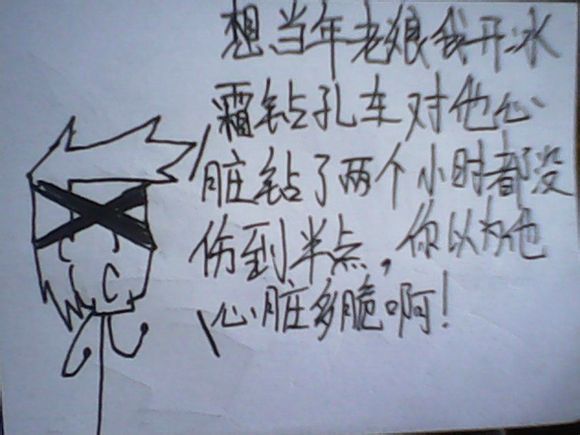 想当年老娘我开冰
霜钻孔车对他心
脏钻了两个小时都没
伤到半点，你以为他
心脏多脆啊！